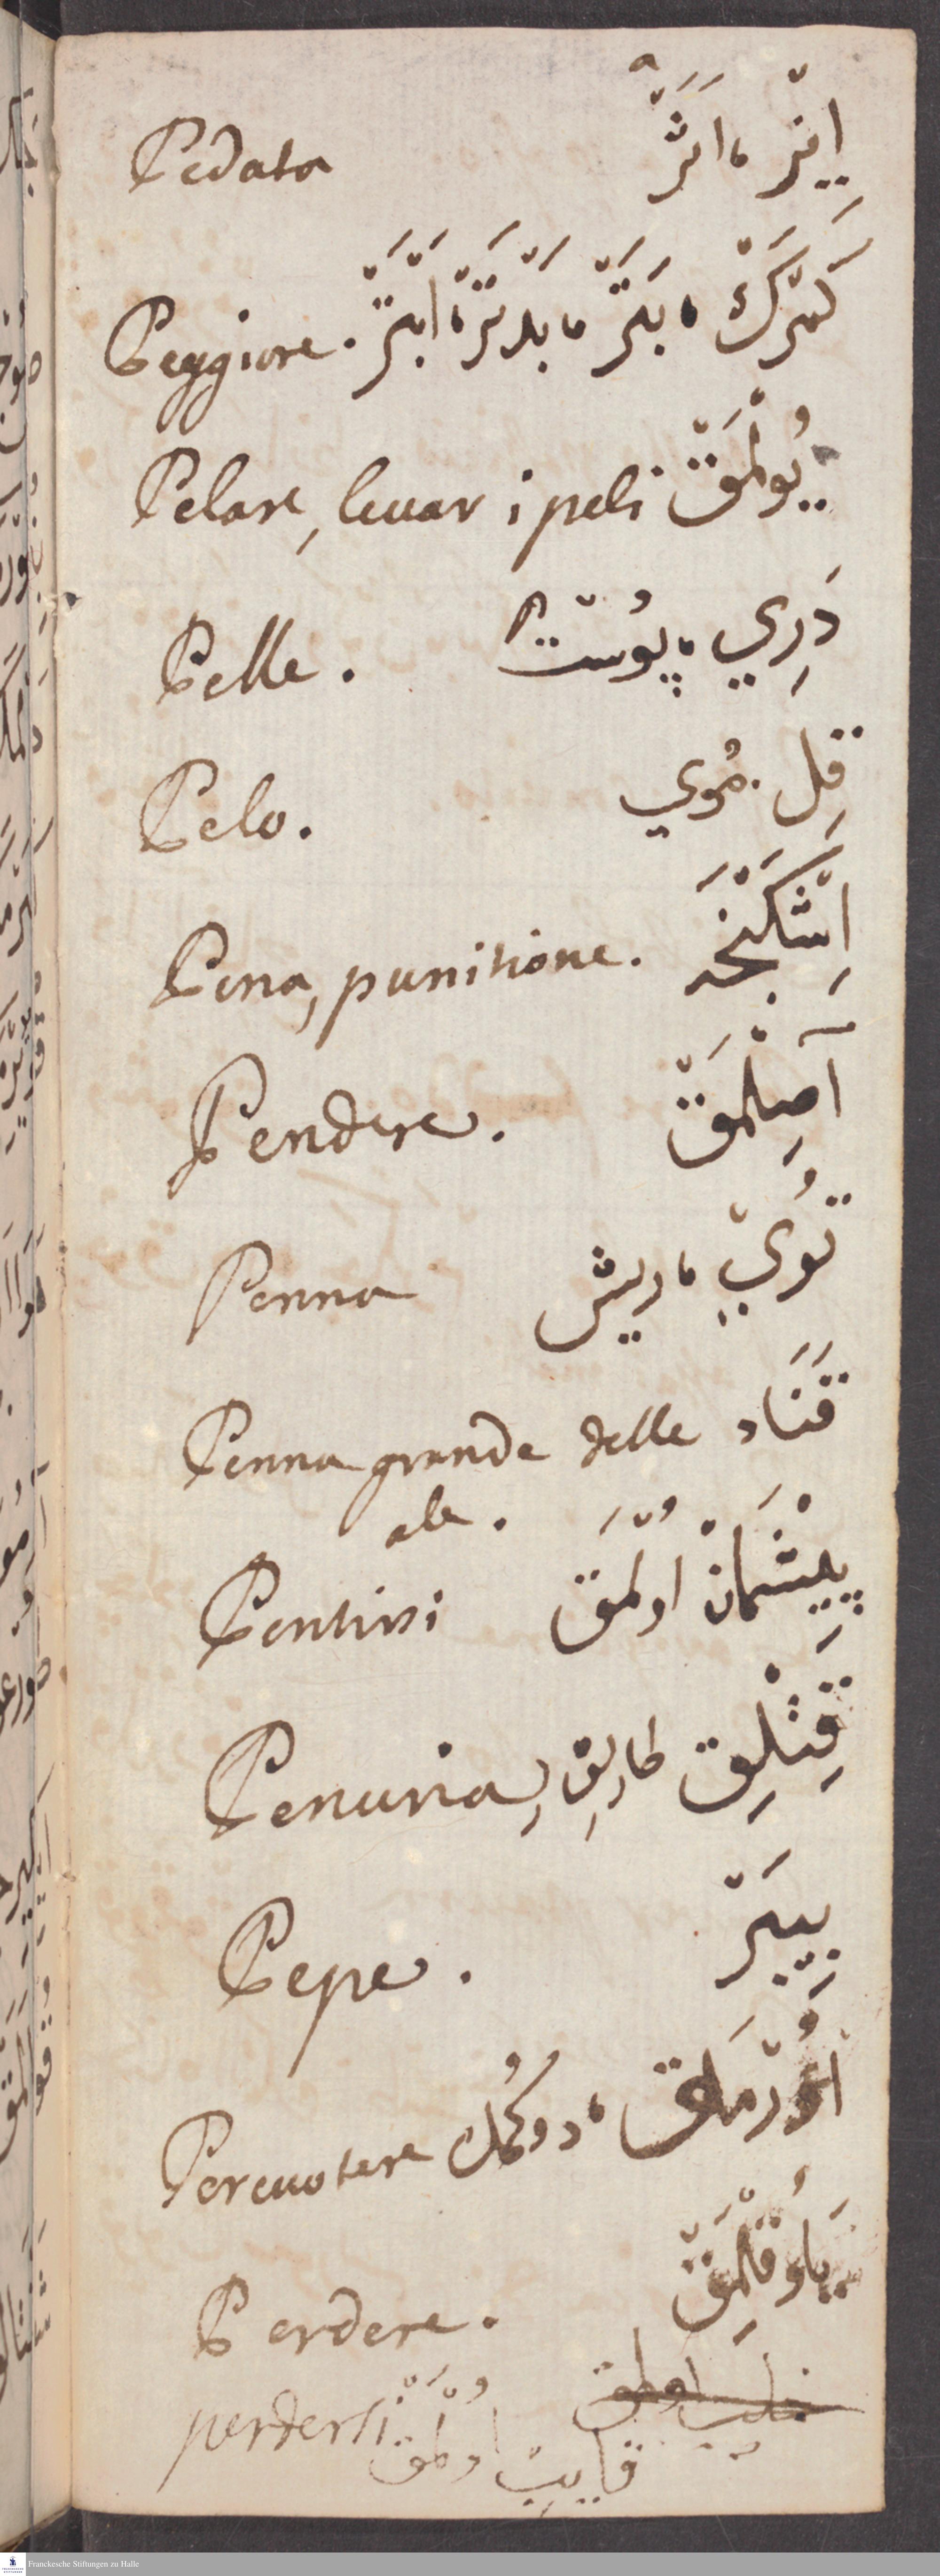 Pedata اِيزْ ، اَثَرْ
Peggiore. كَمْتَرَكْ ، بَتَرْ ، بَدْتَرْ ، اَبْتَرْ
Pelare, leuar i peli يُولْمَقْ
Pelle. دَرِي ، پُوسْتْ
Pelo. قِل . مُوي
Pena, punitione. اِشْكَنْجَه
Pendere. آصِلْمَقْ
Penna تُويْ ، ريش
Penna grande delle قَنَاد
ale.
Pentirsi پِيشْمَانْ اولْمَقْ
Penuria قِتْلِق طارلِق
Pepe. بيبَرْ
Percuotere اُورْمَاق ، دوكُمك
Perdere.
perdersi غايب اولمق
قايب اُولْمَقْ